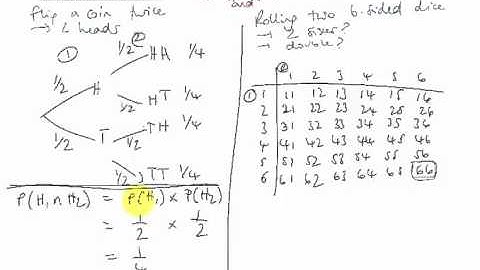 and
flip a coin twice
→ 2 heads
① ②
1/2 H 1/2 HH 1/4
1/2 HT 1/4
1/2 T 1/2 TH 1/4
1/2 TT 1/4
P(H₁ ∩ H₂) = P(H₁) × P(H₂)
= 1/2 × 1/2
= 1/4
Rolling two 6-sided dice
→ 2 sixes?
→ double?
②
1 2 3 4 5 6
① 1 11 12 13 14 15 16
2 21 22 23 24 25 26
3 31 32 33 34 35 36
4 41 42 43 44 45 46
5 51 52 53 54 55 56
6 61 62 63 64 65 66